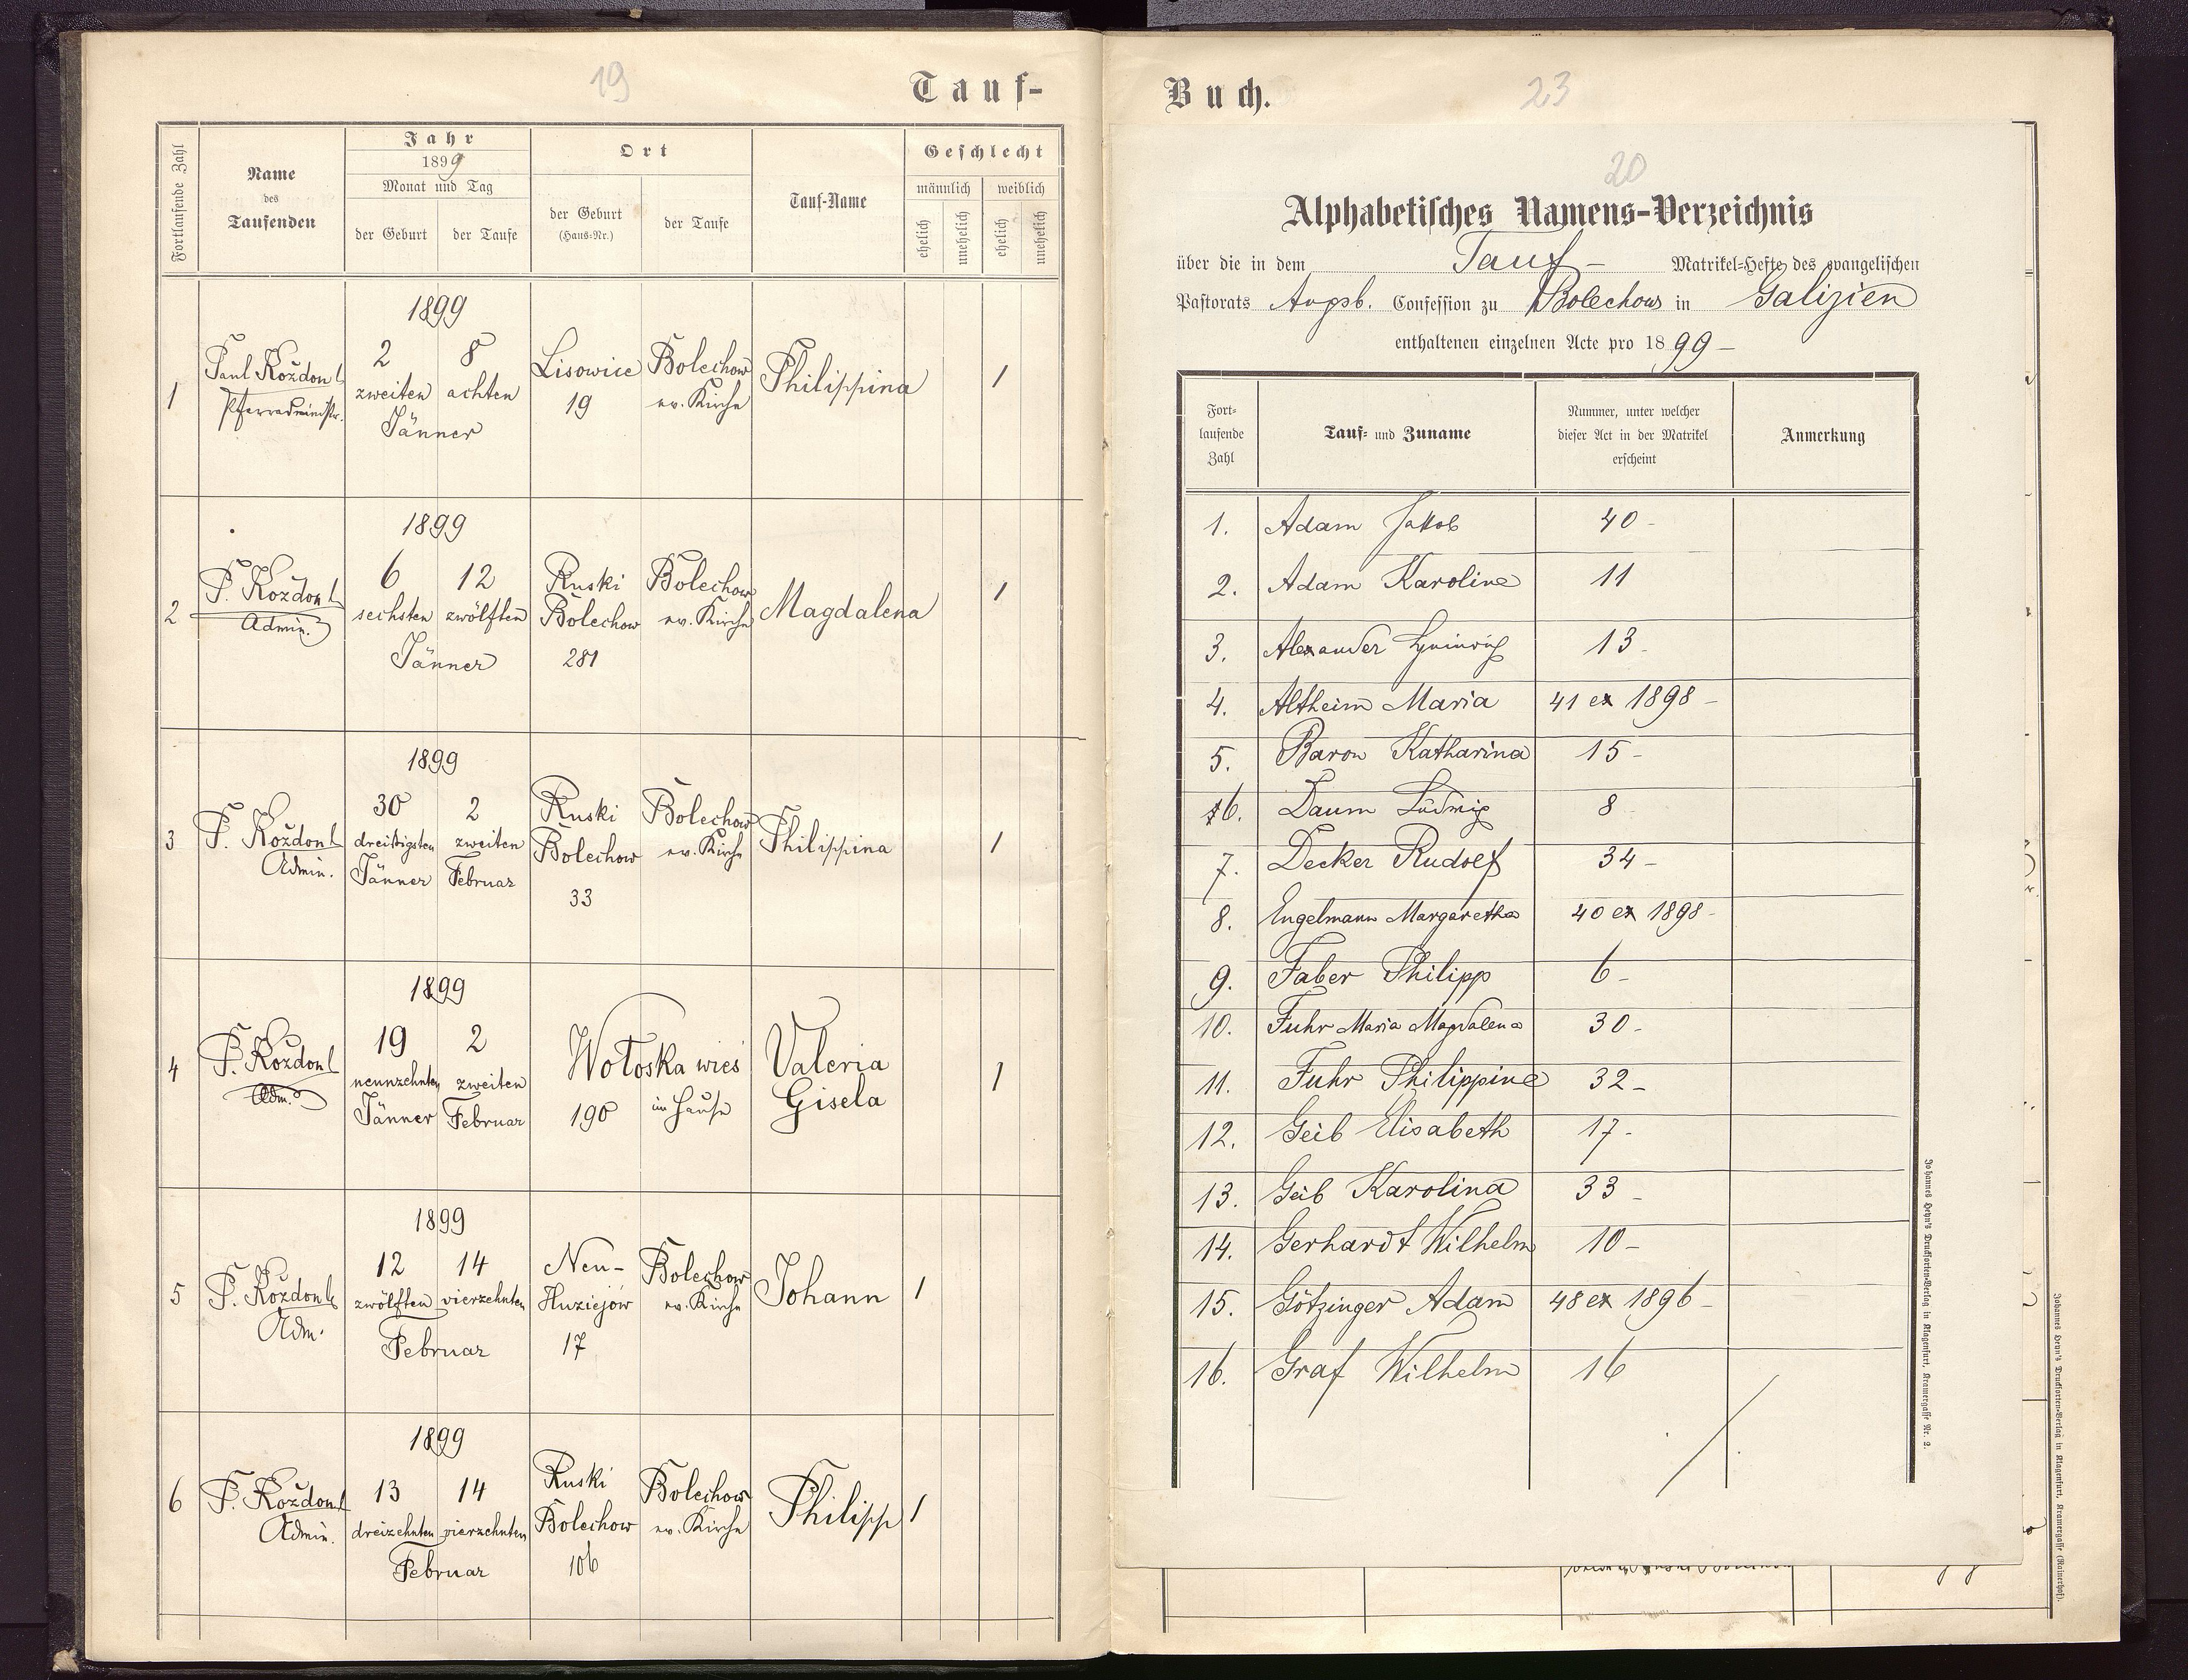 19
Tauf-
Fortlaufende Zahl
Name
des
Taufenden
Jahr
1899
Monat und Tag
der Geburt
der Taufe
Ort
der Geburt
(Haus-Nr.)
der Taufe
Tauf-Name
Geschlecht
männlich
weiblich
ehelich
unehelich
ehelich
unehelich
1
Paul Kożdoń
Pfarradministr.
1899
2 8
zweiten achten
Jänner
Lisowice
19
Bolechow
ev. Kirche
Philippina
1
2
P. Kożdoń
Admin.
1899
6 12
sechsten zwölften
Jänner
Ruski
Bolechow
281
Bolechow
ev. Kirche
Magdalena
1
3
P. Kożdoń
Admin.
1899
30 2
dreißigsten zweiten
Jänner Februar
Ruski
Bolechow
33
Bolechow
ev. Kirche
Philippina
1
4
P. Kożdoń
Adm.
1899
19 2
neunzehnten zweiten
Jänner Februar
Wołoska wieś
190
im Hause
Valeria
Gisela
1
5
P. Kożdoń
Adm.
1899
12 14
zwölften vierzehnten
Februar
Neu-
Huziejów
17
Bolechow
ev. Kirche
Johann
1
6
P. Kożdoń
Admin.
1899
13 14
dreizehnten vierzehnten
Februar
Ruski
Bolechow
106
Bolechow
ev. Kirche
Philipp
1
Buch.
23
20
Alphabetisches Namens-Verzeichnis
über die in dem Tauf- Matrikel-Hefte des evangelischen
Pastorats Augsb. Confession zu Bolechow in Galizien
enthaltenen einzelnen Acte pro 1899-
Fort-
laufende
Zahl
Tauf- und Zuname
Nummer, unter welcher
dieser Act in der Matrikel
erscheint
Anmerkung
1. Adam Jakob 40-
2. Adam Karoline 11
3. Alexander Heinrich 13-
4. Altheim Maria 41 ex 1898-
5. Baron Katharina 15-
6. Daum Ludwig 8
7. Decker Rudolf 34-
8. Engelmann Margaretha 40 ex 1898-
9. Faber Philipp 6-
10. Fuhr Maria Magdalena 30-
11. Fuhr Philippine 32-
12. Geib Elisabeth 17-
13. Geib Karolina 33-
14. Gerhardt Wilhelm 10-
15. Götzinger Adam 48 ex 1896-
16. Graf Wilhelm 16
Johannes Heyn's Drucksorten-Verlag in Klagenfurt, Kramergasse Nr. 2.
Johannes Heyn's Drucksorten-Verlag in Klagenfurt, Kramergasse (Rainerhof).